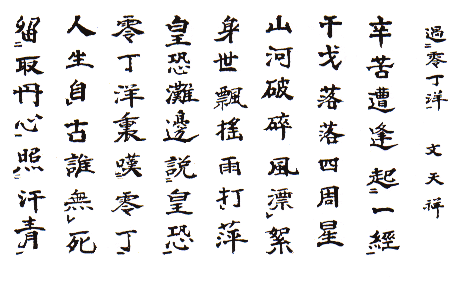 過零丁洋 文天祥
辛苦遭逢起一經
干戈落落四周星
山河破碎風漂絮
身世飄搖雨打萍
皇恐灘邊說皇恐
零丁洋裏嘆零丁
人生自古誰無死
留取丹心照汗青